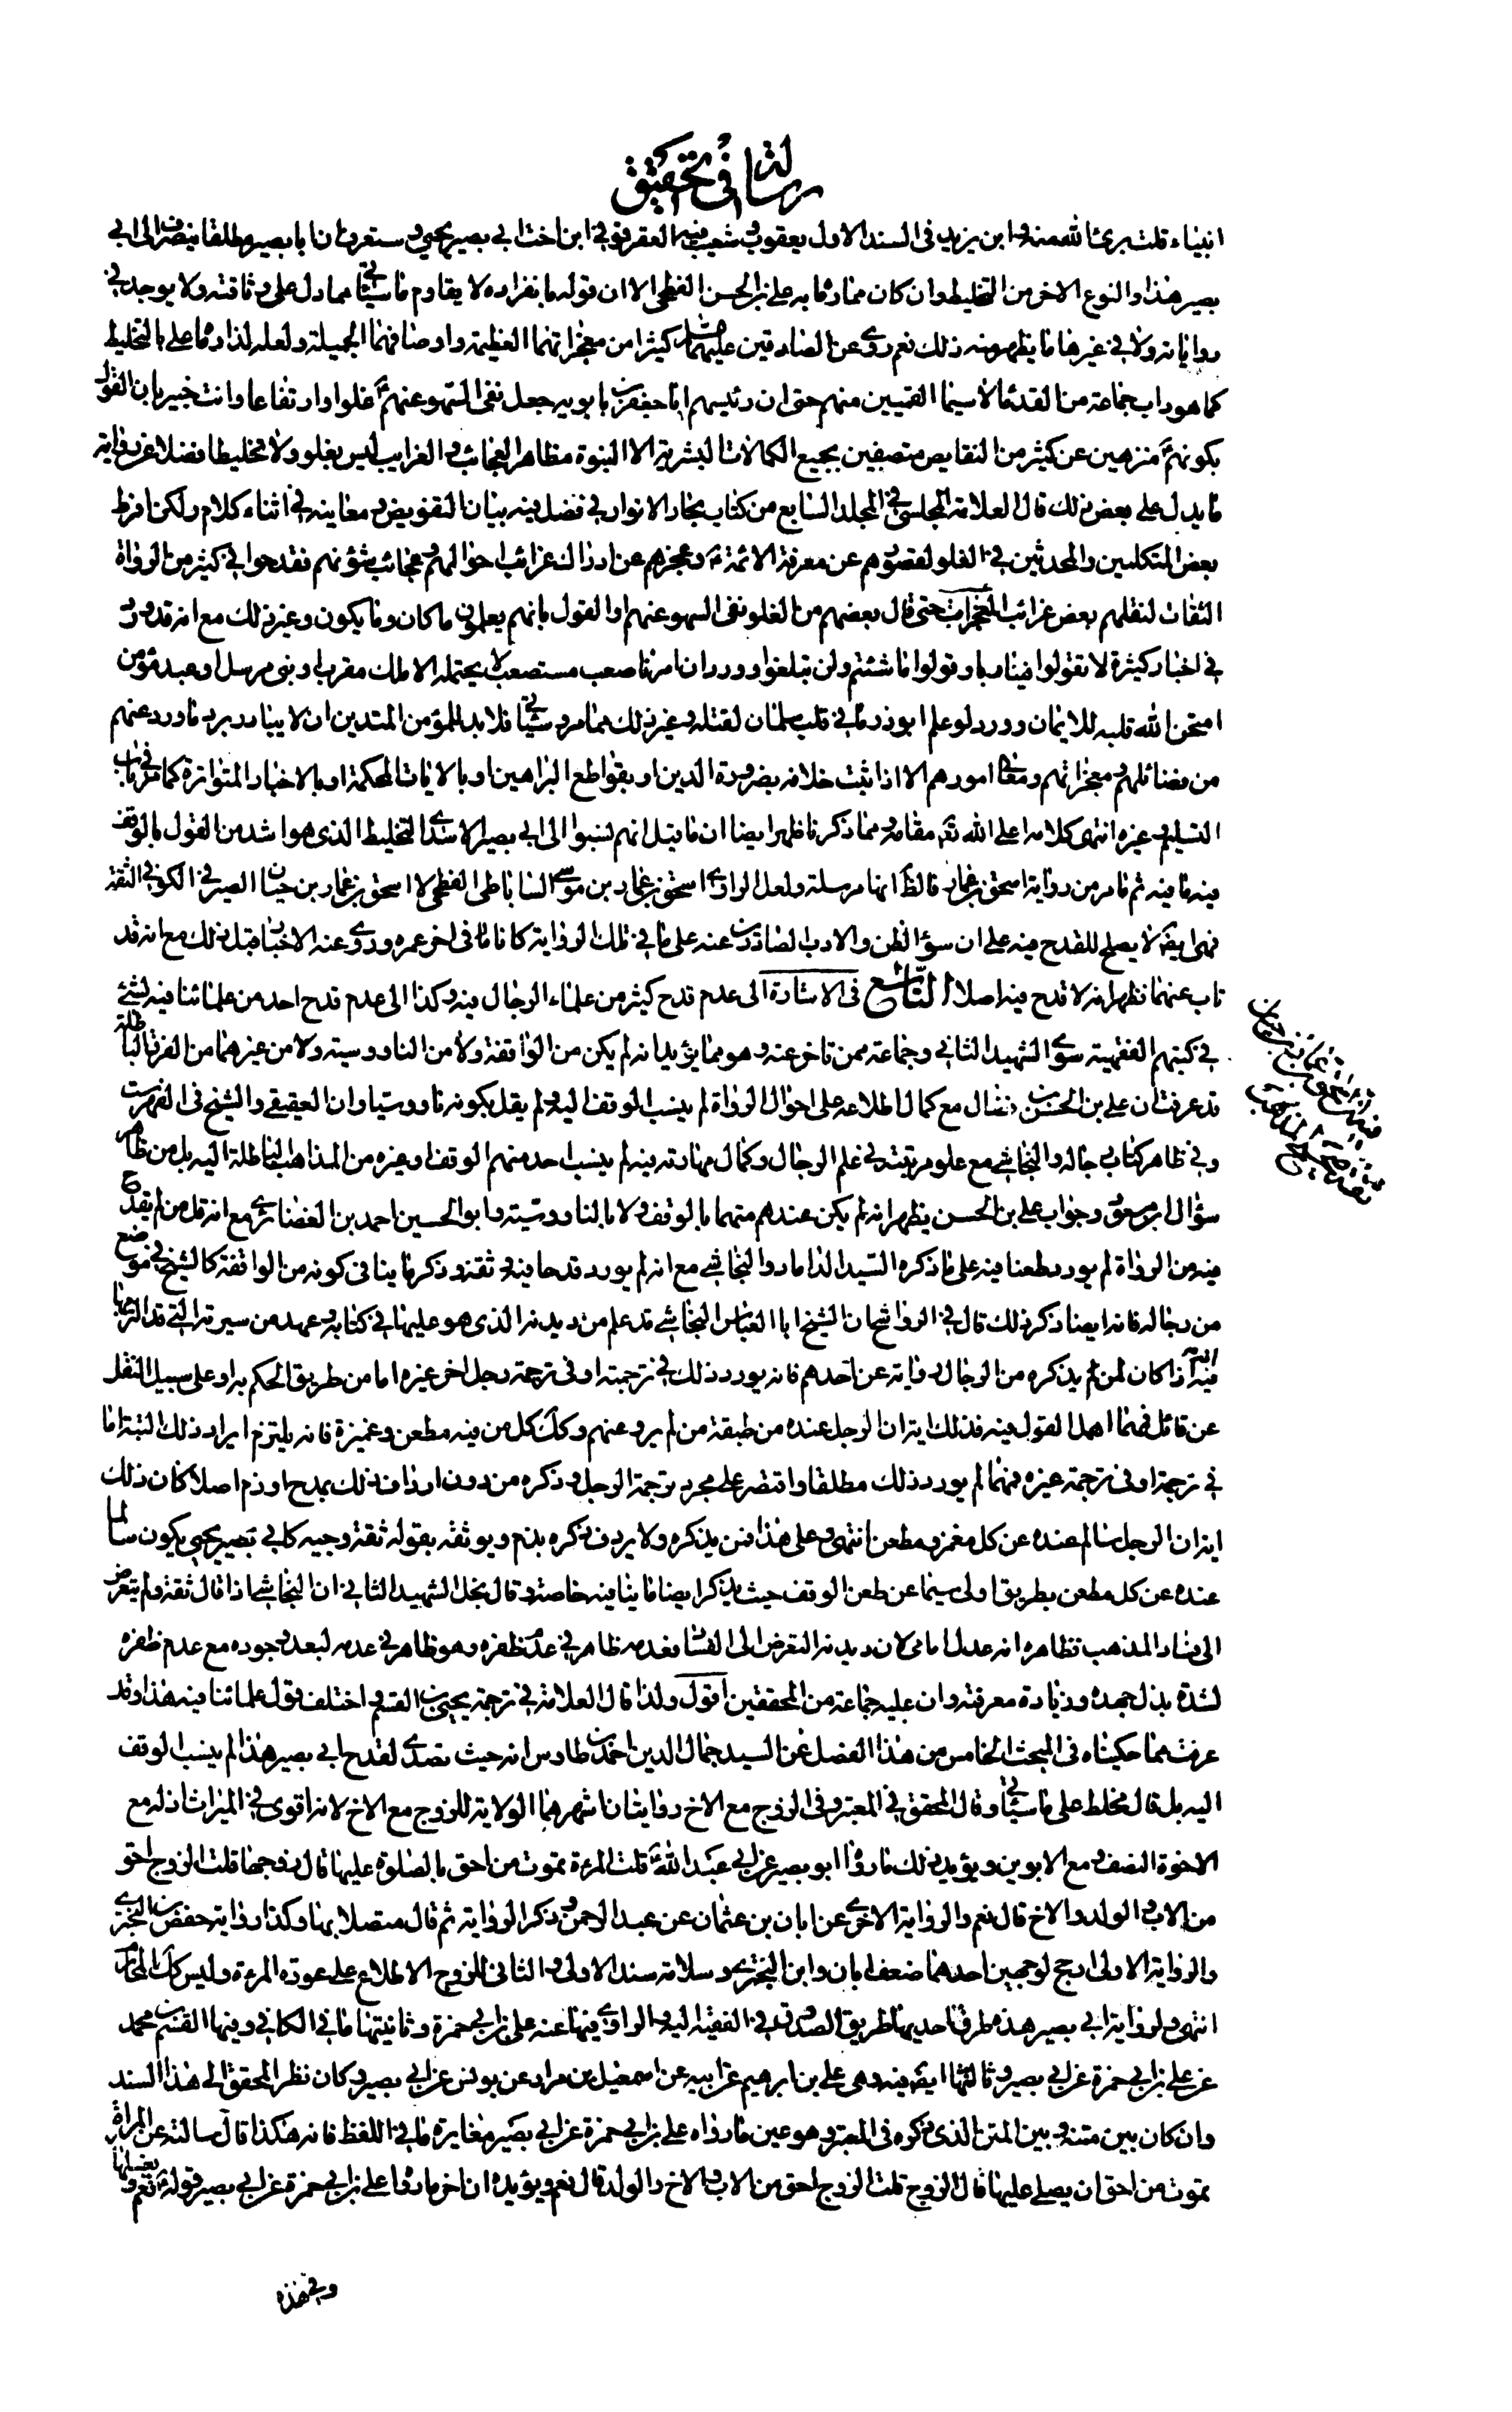 رسالة في تحقيق
انبياء قلت برئ الله منه وابن يزيد في السند الاول يعقوب وشعيب فيه العقرقوفي ابن اخت ابي بصير يحيى وستعرف ان ابا بصير مطلقا ينصرف الى ابي
بصير هذا والنوع الاخر من التخليط وان كان مما رماه به علي بن الحسن الفطحي الا ان قوله بانفراده لا يقاوم ما سيأتي مما دل على وثاقته ولا يوجد في
رواياته ولا في غيرها ما يظهر منه ذلك نعم روى عن الصادقين عليهما السلام كثيرا من معجزاتهما العظيمة واوصافهما الجميلة ولعله لذا رماه علي بالتخليط
كما هو داب جماعة من القدماء لا سيما القميين منهم حتى ان رئيسهم ابا جعفر بن بابويه جعل نفي السهو عنهم غلوا وارتفاعا وانت خبير بان القول
بكونهم منزهين عن كثير من النقايص متصفين بجميع الكمالات البشرية الا النبوة مظاهر العجائب والغرايب ليس بغلو ولا تخليط فضلا عن رواية
ما يدل على بعض ذلك قال العلامة المجلسي في المجلد السابع من كتاب بحار الانوار في فصل فيه بيان التفويض ومعانيه في اثناء كلام ولكن افرط
بعض المتكلمين والمحدثين في الغلو لقصورهم عن معرفة الائمة وعجزهم عن ادراك غرائب احوالهم وعجائب شؤنهم فقدحوا في كثير من الرواة
الثقات لنقلهم بعض غرائب المعجزات حتى قال بعضهم من الغلو نفي السهو عنهم او القول بانهم يعلمون ما كان وما يكون وغير ذلك مع انه قد ورد
في اخبار كثيرة لا تقولوا فينا ربا وقولوا ما شئتم ولن تبلغوا وورد ان امرنا صعب مستصعب لا يحتمله الا ملك مقرب او نبي مرسل او عبد مؤمن
امتحن الله قلبه للايمان وورد لو علم ابو ذر ما في قلب سلمان لقتله وغير ذلك مما مر وسيأتي فلا بد للمؤمن المتدين ان لا يبادر برد ما ورد عنهم
من فضائلهم ومعجزاتهم ومعالي امورهم الا اذا ثبت خلافه بضرورة الدين او بقواطع البراهين او بالايات المحكمة او بالاخبار المتواترة كما مر في باب
التسليم وغيره انتهى كلامه اعلى الله تعالى مقامه ومما ذكرنا ظهر ايضا ان ما قيل انهم نسبوا الى ابي بصير الاسدي التخليط الذي هو اشد من القول بالوقف
فيه ما فيه ثم ما مر من رواية اسحق بن عمار فالظ انها مرسلة ولعل الراوي اسحق بن عمار بن موسى الساباطي الفطحي لا اسحق بن عمار بن حيان الصيرفي الكوفي الثقة
فهي ايضا لا يصلح للقدح فيه على ان سوء الظن والادب الصادرين عنه على ما في تلك الرواية كانا في اخر عمره وروى عنه الاخبار قبل ذلك مع انه قد
تاب عنهما فظهر انه لا قدح فيه اصلا التاسع في الاشارة الى عدم قدح كثير من علماء الرجال فيه وكذا الى عدم قدح احد من علمائنا فيه بشئ
في كتبهم الفقهية سوى الشهيد الثاني وجماعة ممن تاخر عنه وهو مما يؤيد انه لم يكن من الواقفة ولا من الناووسية ولا من غيرهما من الفرق الباطلة
قد عرفت ان علي بن الحسن بن فضال مع كمال اطلاعه على احوال الرواة لم ينسب الوقف اليه ولم يقل بكونه ناووسيا وان العقيقي والشيخ في الفهرست
وفي ظاهر كتابي رجاله والنجاشي مع علو مرتبته في علم الرجال وكمال مهارته فيه لم ينسب احد منهم الوقف وغيره من المذاهب الباطلة اليه بل من ظاهر
سؤال ابن مسعود وجواب علي بن الحسن يظهر انه لم يكن عندهم متهما بالوقف ولا بالناووسية وابو الحسين احمد بن الغضائري مع انه قل من لم يقدح
فيه من الرواة لم يورد طعنا فيه على ما ذكره السيد الداماد والنجاشي مع انه لم يورد قدحا فيه وثقه وذكر ما ينافي كونه من الواقفة كالشيخ في موضع
من رجاله فانه ايضا ذكر ذلك قال في الرواشح ان الشيخ ابا العباس النجاشي قد علم من ديدنه الذي هو عليه في كتابه وعهد من سيرته التي قد التزمها
فيه انه اذا كان لمن لم يذكره من الرجال رواية عن احدهم فانه يورد ذلك في ترجمته او في ترجمة رجل اخر غيره اما من طريق الحكم به او على سبيل النقل
عن قائل فمهما اهمل القول فيه فذلك اية ان الرجل عنده من طبقة من لم يرو عنهم وكك كل من فيه مطعن وغميزة فانه يلتزم ايراد ذلك البتة اما
في ترجمته او في ترجمة غيره فمهما لم يورد ذلك مطلقا واقتصر على مجرد ترجمة الرجل وذكره من دون ارداف ذلك بمدح او ذم اصلا كان ذلك
اية ان الرجل سالم عنده عن كل مغمز ومطعن انتهى وعلى هذا فمن يذكره ولا يردف ذكره بذم ويوثقه بقوله ثقة وجيه كابي بصير يحيى يكون سالما
عنده عن كل مطعن بطريق اولى سيما عن طعن الوقف حيث يذكر ايضا ما ينافيه خاصة وقال نجل الشهيد الثاني ان النجاشي اذا قال ثقة ولم يتعرض
الى فساد المذهب فظاهره انه عدل امامي لان ديدنه التعرض الى الفساد فعدمه ظاهر في عدم ظفره وهو ظاهر في عدمه لبعد وجوده مع عدم ظفره
لشدة بذل جهده وزيادة معرفته وان عليه جماعة من المحققين اقول ولذا قال العلامة في ترجمة يحيى بن القسم واختلف قول علمائنا فيه هذا وقد
عرفت مما حكيناه في المبحث الخامس من هذا الفصل عن السيد جمال الدين احمد بن طاوس انه حيث تصدى لقدح ابي بصير هذا لم ينسب الوقف
اليه بل قال مخلط على ما سيأتي وقال المحقق في المعتبر وفي الزوج مع الاخ روايتان اشهرهما الولاية للزوج مع الاخ لانه اقوى في الميراث اذ له مع
الاخوة النصف ومع الابوين ويؤيد ذلك ما رواه ابو بصير عن ابي عبد الله قلت المرءة تموت من احق بالصلوة عليها قال زوجها قلت الزوج احق
من الاب والولد والاخ قال نعم والرواية الاخرى عن ابان بن عثمان عن عبد الرحمن وذكر الرواية ثم قال متصلا بها وكذا رواية حفص بن البختري
والرواية الاولى ارجح لوجهين احدهما ضعف ابان وابن البختري وسلامة سند الاولى والثاني للزوج الاطلاع على عورة المرءة وليس كك المحارم
انتهى ولرواية ابي بصير هذه طرق احديها طريق الصدوق في الفقيه اليه والراوي فيها عنه علي بن ابي حمزة وثانيتها ما في الكافي وفيها القسم بن محمد
عن علي بن ابي حمزة عن ابي بصير وثالثها ايضا فيه وهي علي بن ابرهيم عن ابيه عن اسمعيل بن مرار عن يونس عن ابي بصير وكان نظر المحقق الى هذا السند
وان كان بين متنه وبين المتن الذي ذكره في المعتبر وهو عين ما رواه علي بن ابي حمزة عن ابي بصير مغايرة ما في اللفظ فانه هكذا قال سالته عن المراة
تموت من احق ان يصلي عليها قال الزوج قلت الزوج احق من الاب والاخ والولد قال نعم ويؤيده ان اخر ما رواه علي بن ابي حمزة عن ابي بصير قوله نعم ويغسلها
وفي هذه